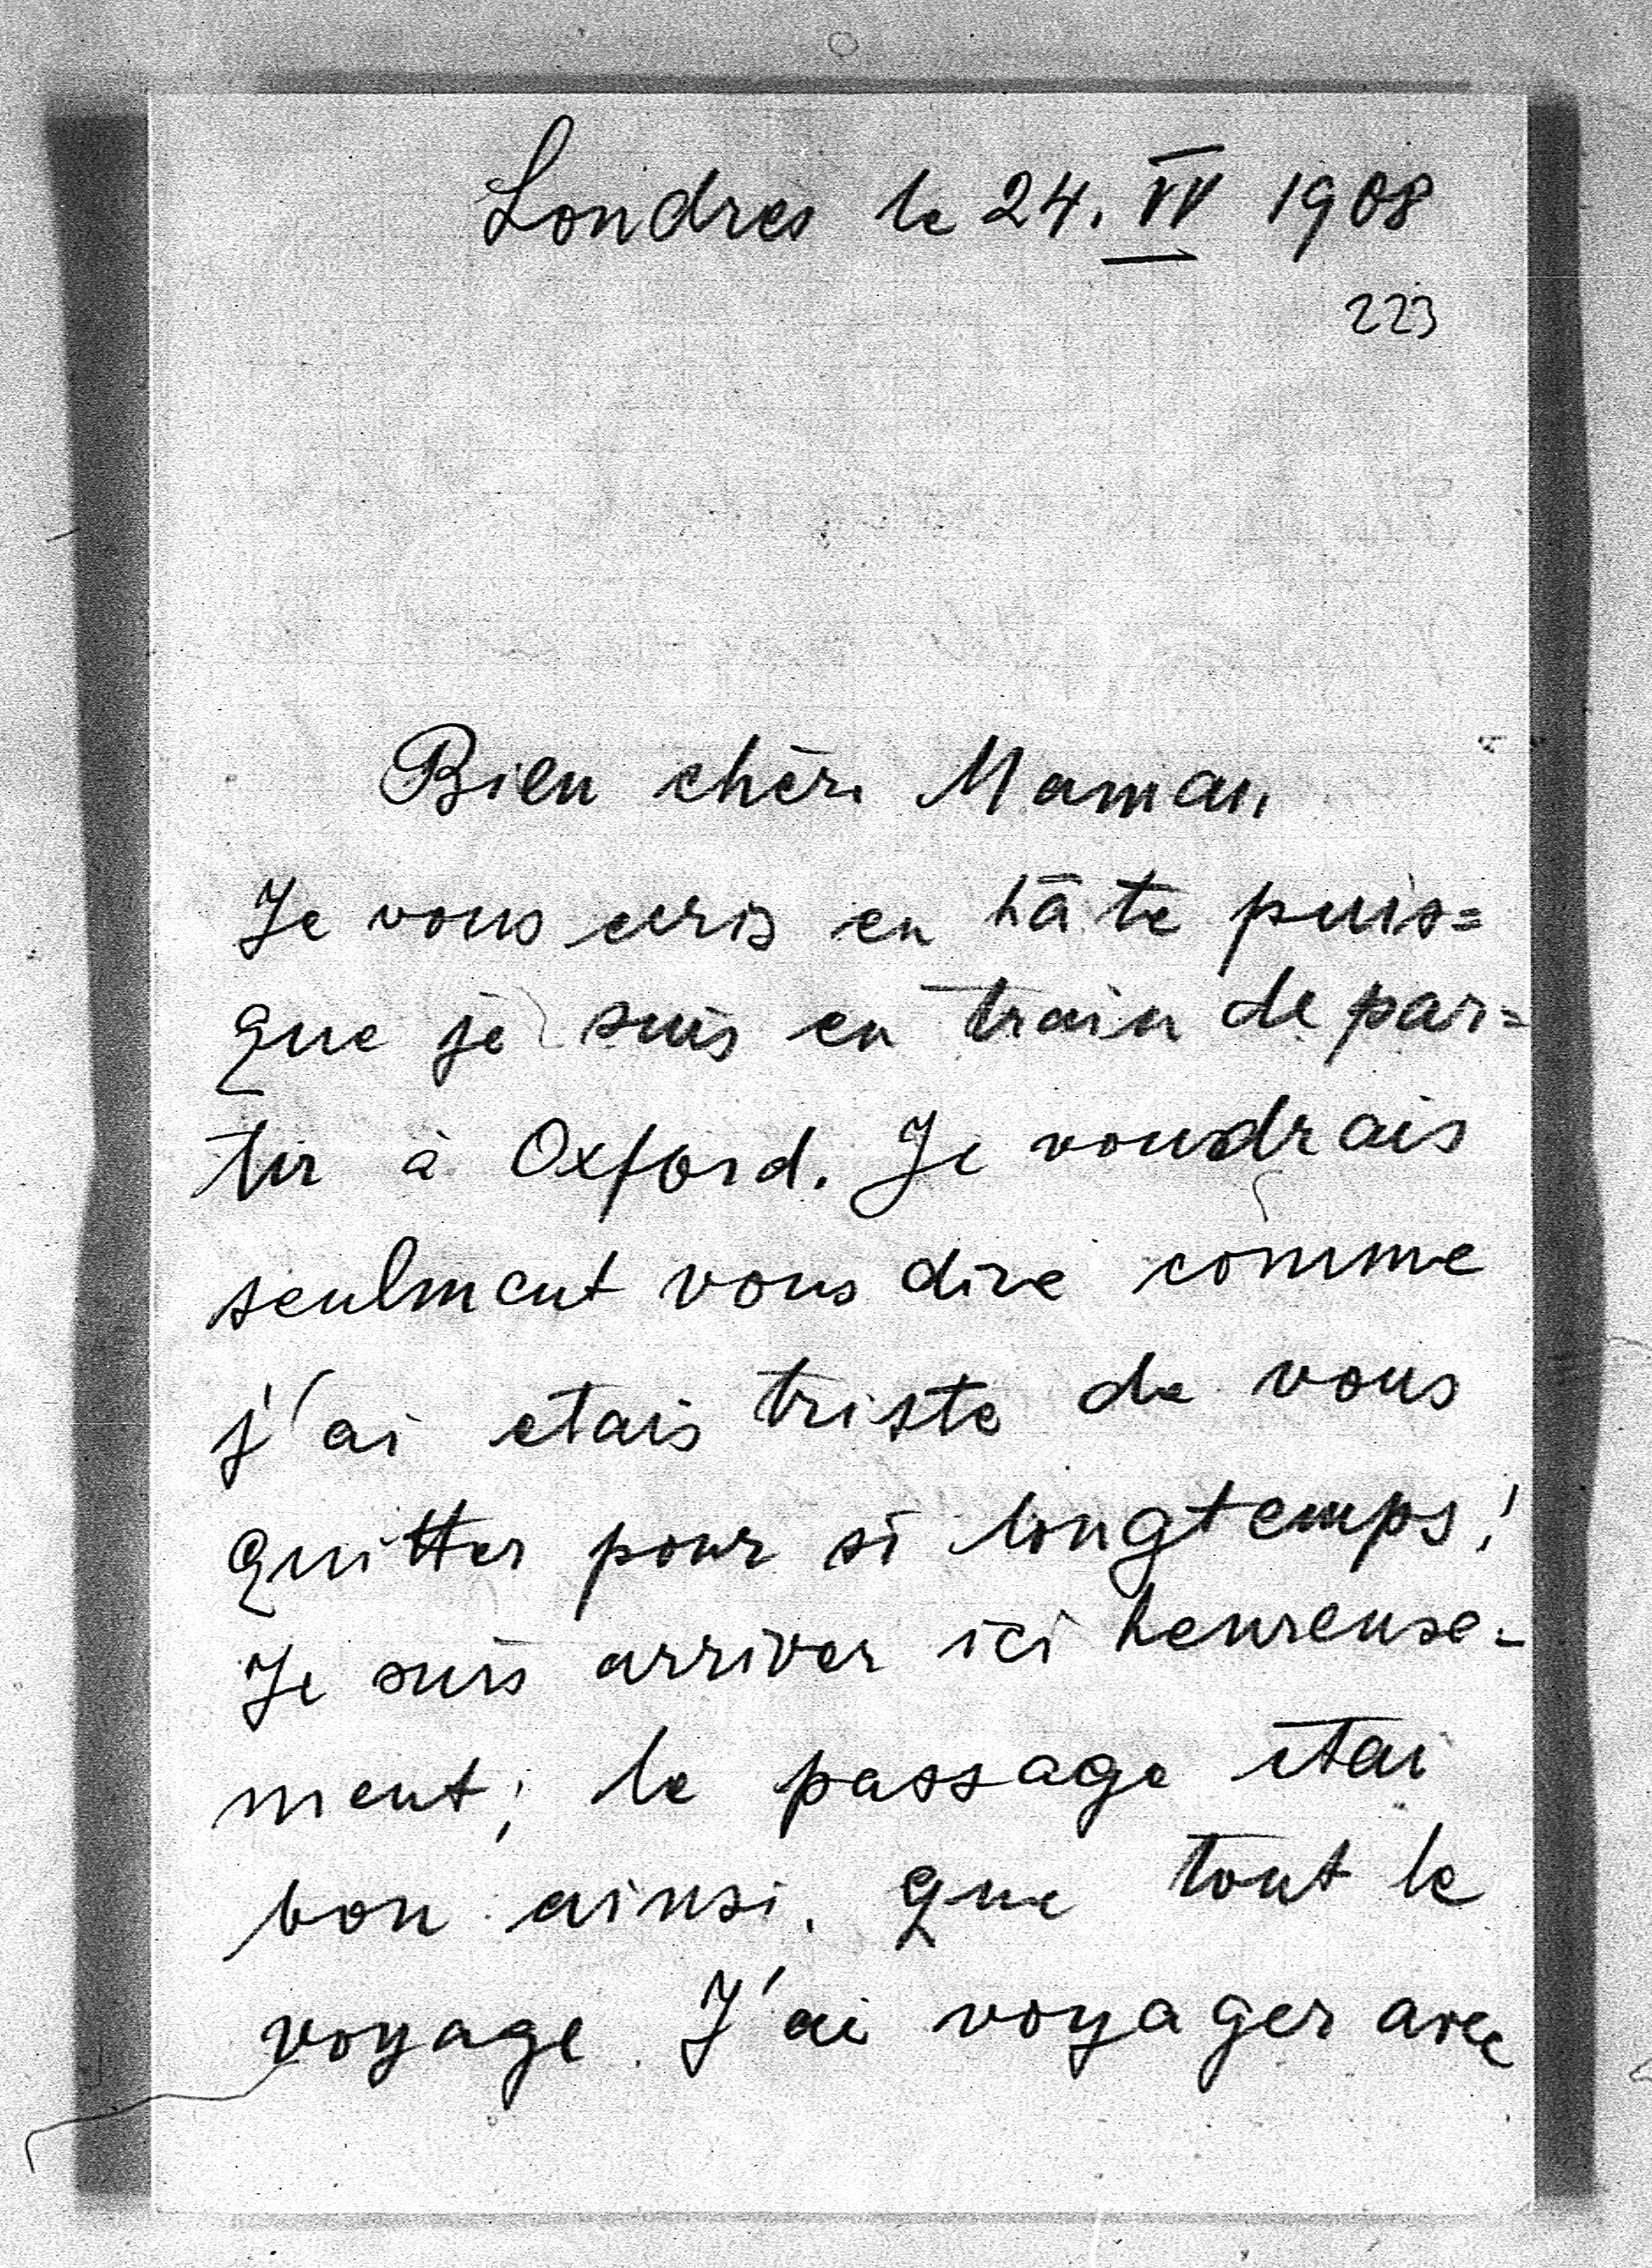 Londres le 24. IV 1908
223
Bien chèri Maman
Je vous ecris en hâte puis=
que je suis en train de par=
tir à Oxford. Je voudrais
seulment vous dire comme
j'ai etais triste de vous
quitter pour si longtemps!
Je suis arriver ici heureuse-
ment; le passage étai
bon ainsi. que tout le
voyage. J'ai voyager avec